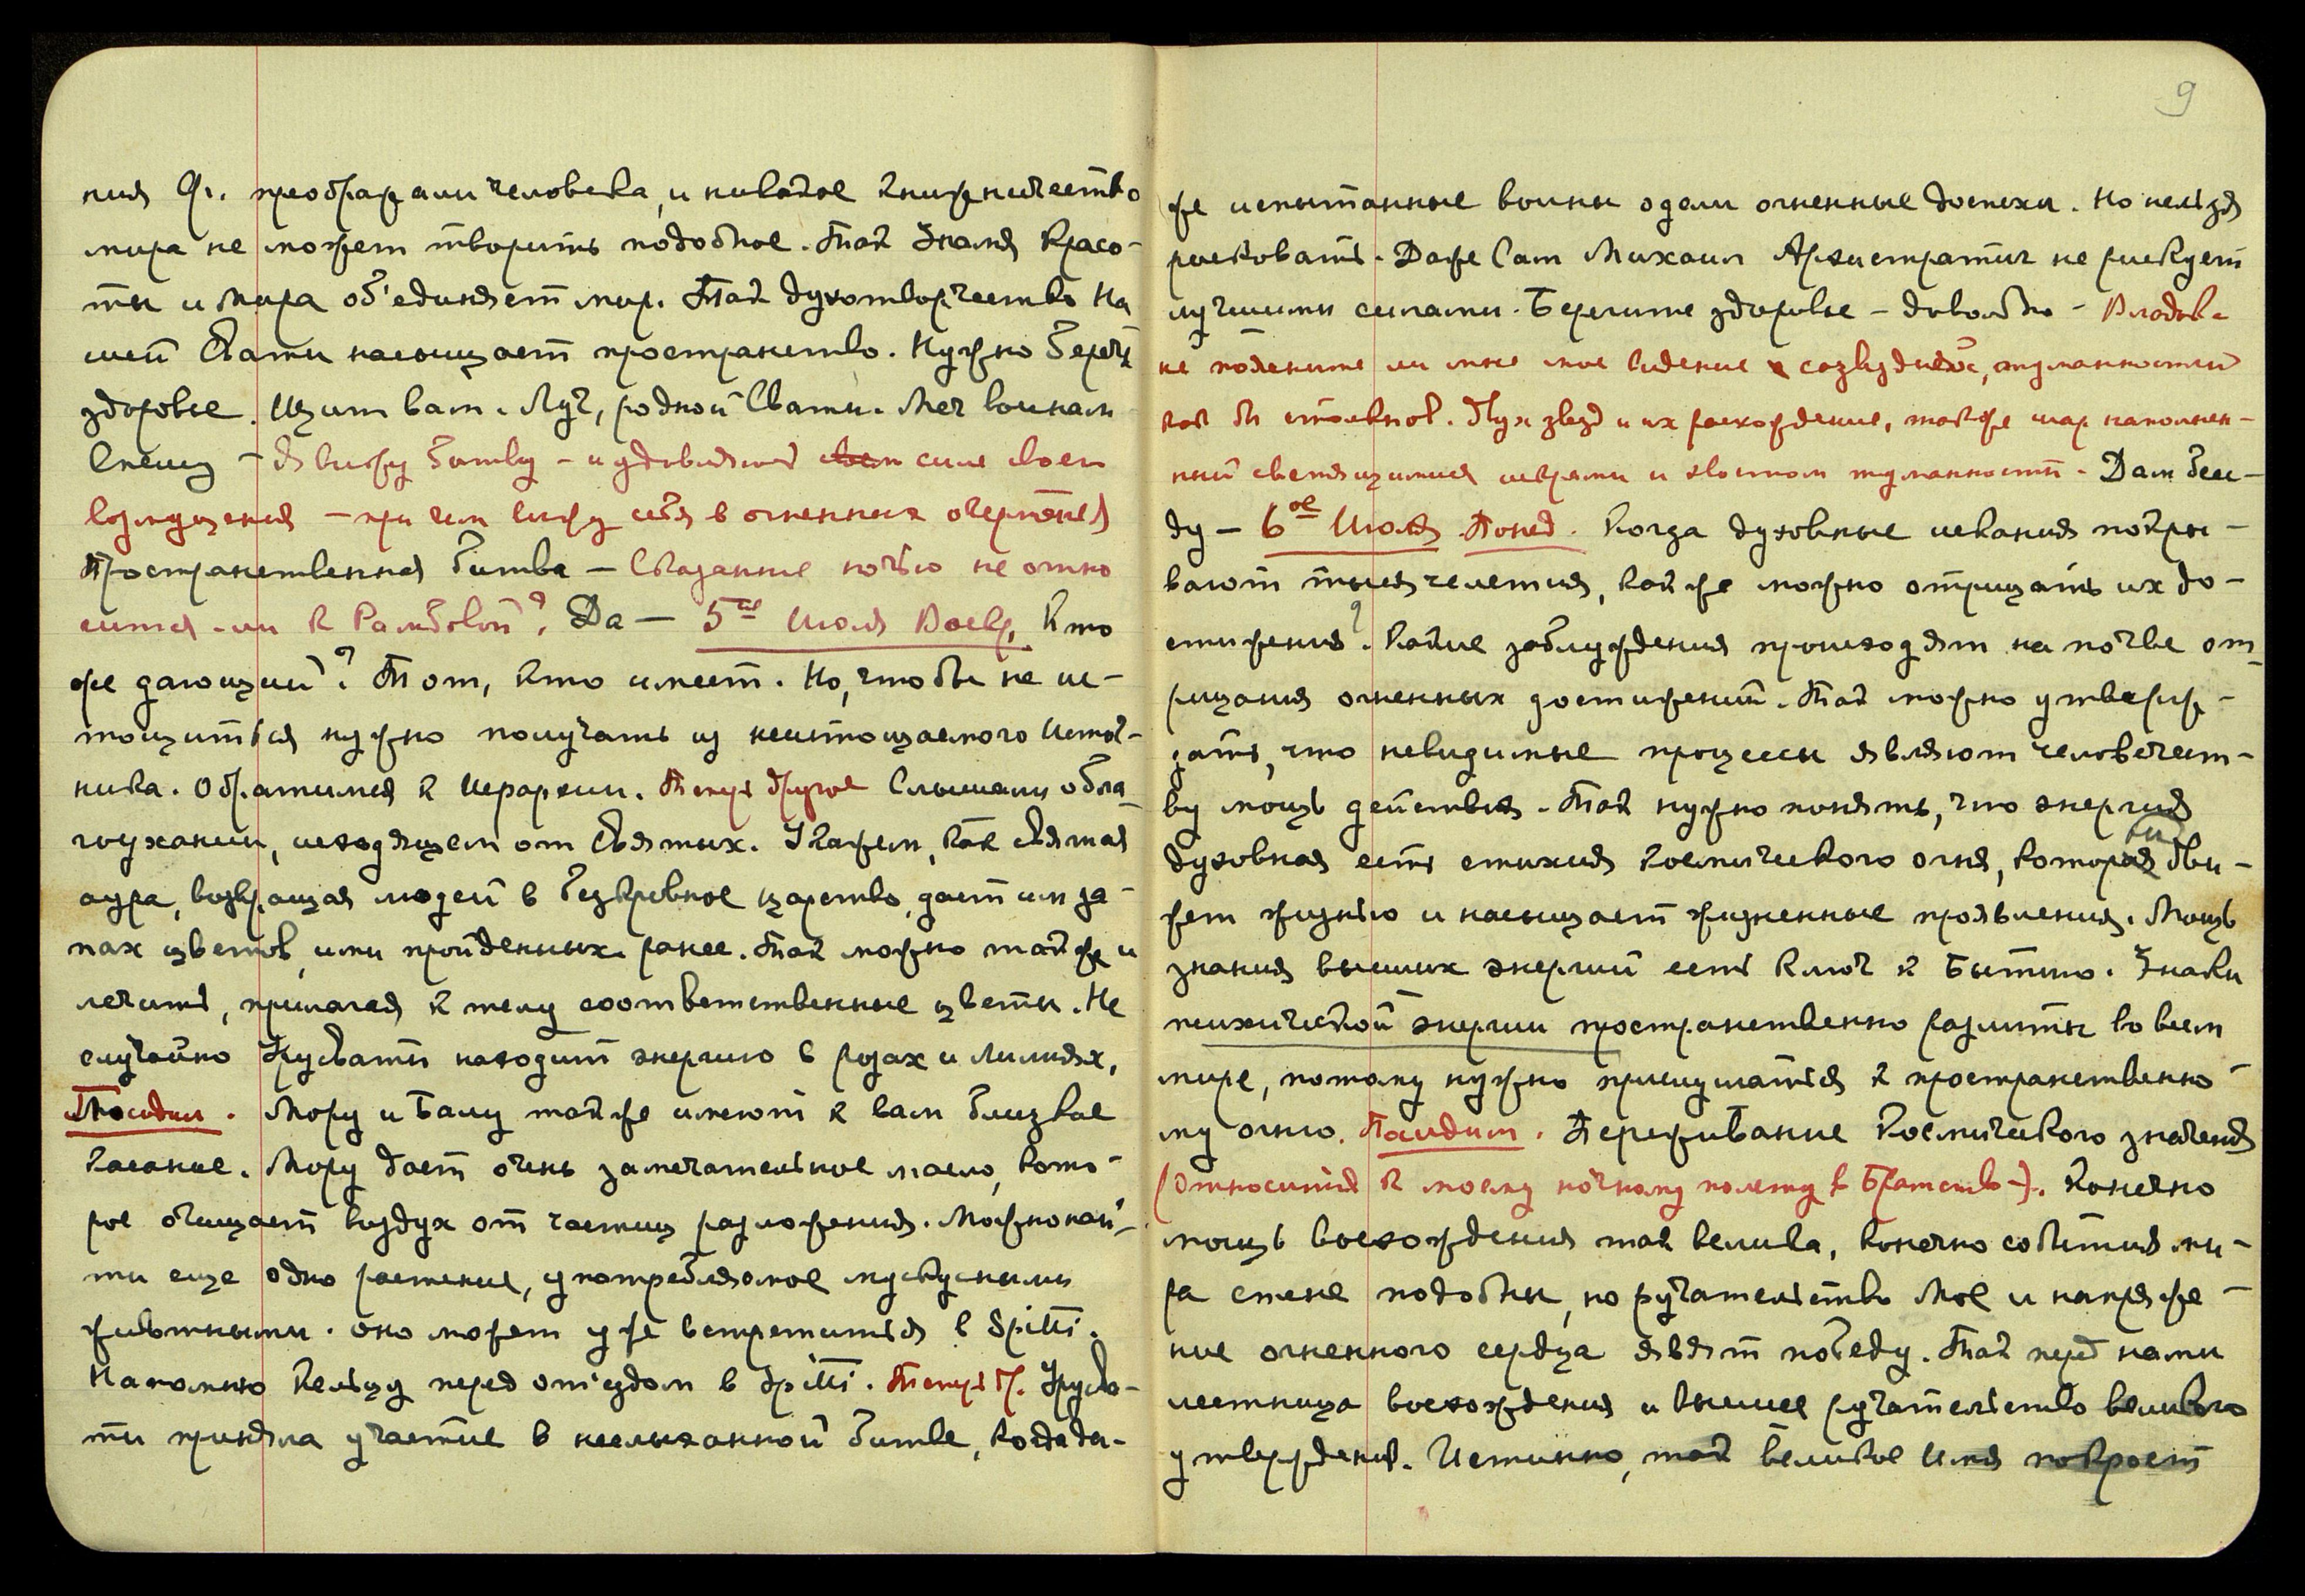 ния Ф. преображали человека, и никакое книжничество
мира не может творить подобное. Так Знамя Красо-
ты и Мира об'единяет мир. Так духотворчество На
шей Свати насыщает пространство. Нужно беречь
здоровье. Щит вам. Луч, родной Свати. Меч воинам
вкешу – Я вижу битву – и удивляюсь своем силе своего
возмущения – при чем вижу себя в огненных очертаниях
Пространственная битва – Сказанное ночью не отно
сится-ли к Рамбовой? Да — 5ое Июля Воскр. Кто
же дающий? Тот, кто имеет. Но, чтобы не ис-
тощиться нужно получать из неистощаемого Источ-
ника. Обратимся к Иерархии. Теперь другое Слышали о бла-
гоухании, исходящем от Святых. Укажем, как святая
аура, возвращая людей в безкровное царство, дает им за-
пах цветов, ими пройденных ранее. Так можно так же и
лечить, прилагая к телу соответственные цветы. Не
случайно Урусвати находит энергию в розах и лилиях,
Мору и Балу так же имеют к вам близкое
касание. Мору дает очень замечательное масло, кото-
рое очищает воздух от частиц разложения. Можно най-
ти еще одно растение, употребляемое мускусными
животными. Оно может уже встретиться в Spitti.
Напомню Кельцу перед от'ездом в Spitti. Теперь др. Урусва-
ти приняла участие в неслыханной битве, когда да-
9
же испытанные воины одели огненные доспехи. Но нельзя
рисковать. Даже Сам Михаил Архистратиг не рискует
лучшими силами. Берегите здоровье – довольно – Владыка
не поясните ли мне мое видение созвездных, туманностей
как бы клочков. Пух звезд и их расхождение, так же шар наполнен-
ный светящимися искрами и хвостом туманности – Дам бесе-
ду – 6ое Июля Понед. Когда духовные искания покры-
вают тысячелетия, как же можно отрицать их до-
стижения? Какие заблуждения происходят на почве от-
рицания огненных достижений. Так можно утверж-
дать, что невидимые процессы являют человечест-
ву мощь действия. Так нужно понять, что энергия
духовная есть стихия космического огня, которая дви-
жет жизнью и насыщает жизненные проявления. Мощь
знания высших энергий есть ключ к Бытию. Знаки
психической энергии пространственно разлиты во всем
мире, потому нужно прислушаться к пространственно-
му огню. Переживание Космического значения
(относится к моему ночному полету в Братство–). Конечно
мощь восхождения так велика, конечно события ми-
ра стене подобны, но ручательство Мое и напряже-
ние огненного сердца явят победу. Так перед нами
лестница восхождения и высшее ручательство великого
утверждения. Истинно, так великое Имя покроет